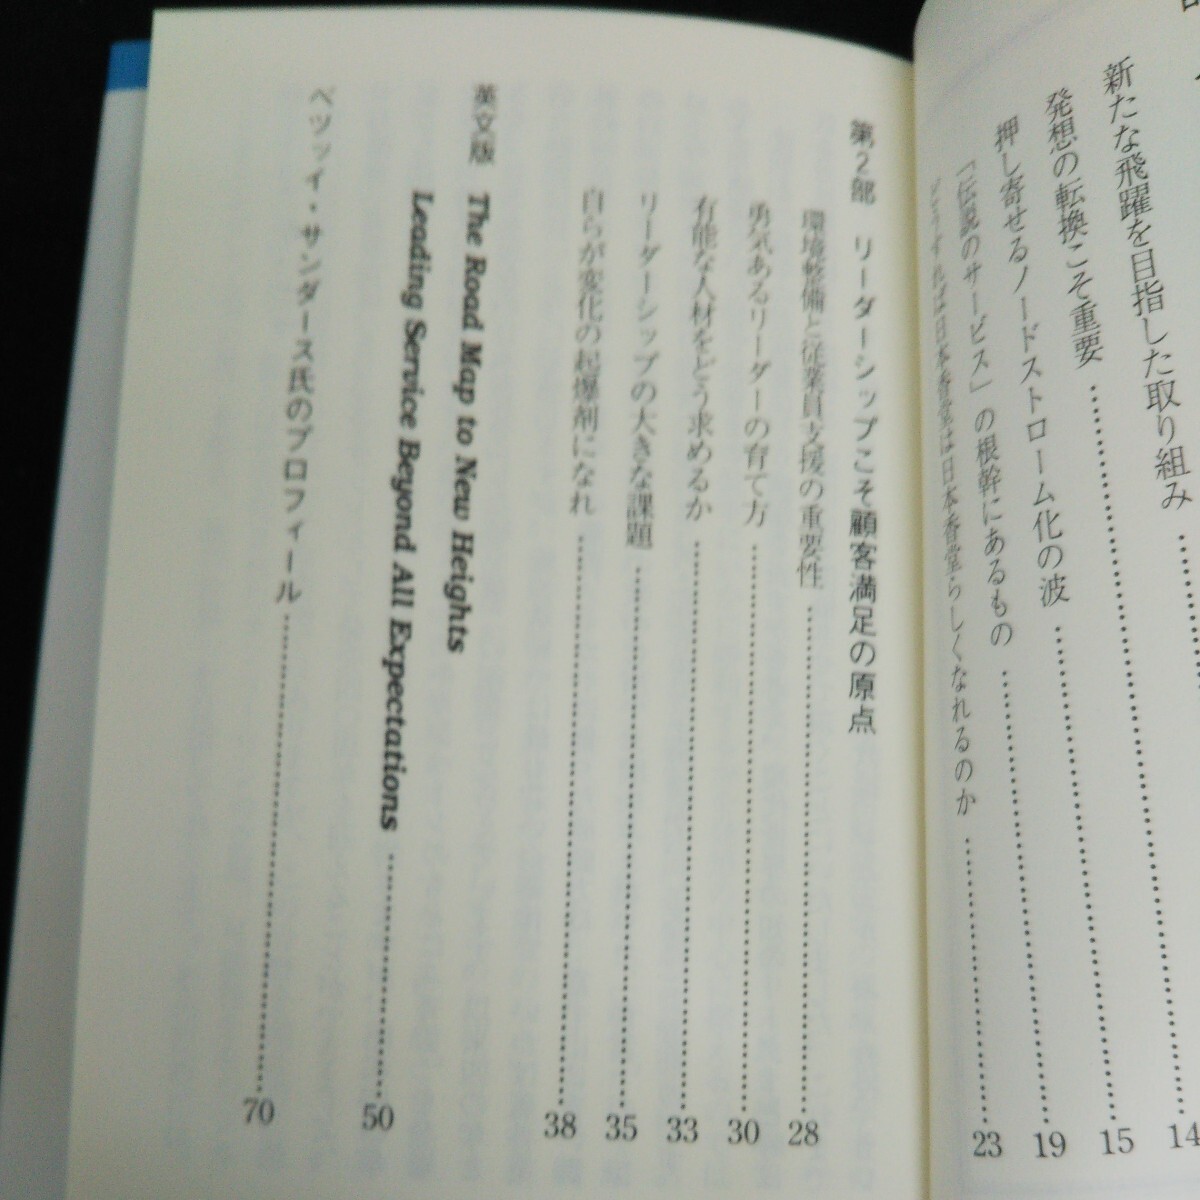 新たな飛躍を目指した取り組み……14
発想の転換こそ重要……15
押し寄せるノードストローム化の波……19
「伝説のサービス」の根幹にあるもの
どうすれば日本香堂は日本香堂らしくなれるのか……23
第2部 リーダーシップこそ顧客満足の原点
環境整備と従業員支援の重要性……28
勇気あるリーダーの育て方……30
有能な人材をどう求めるか……33
リーダーシップの大きな課題……35
自らが変化の起爆剤になれ……38
英文版 The Road Map to New Heights
Leading Service Beyond All Expectations……50
ベッツィ・サンダース氏のプロフィール……70